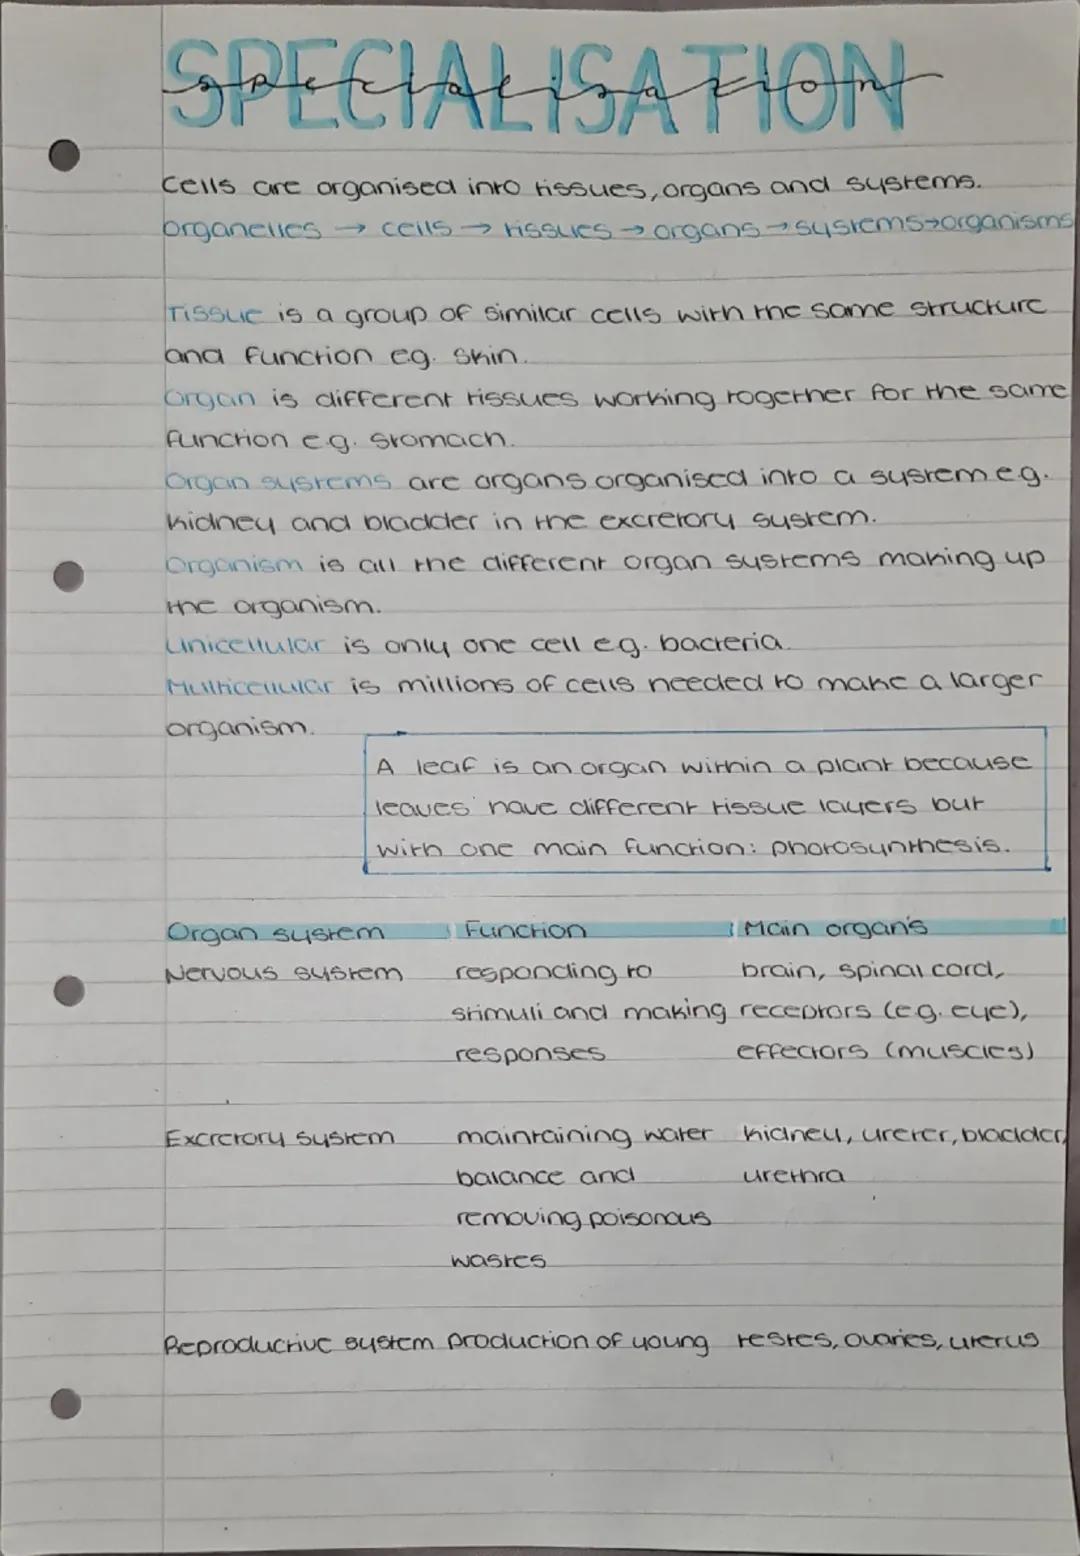 SPECIALISATION
specialisation
Cells are organised into tissues, organs and systems.
organelles → cells → tissues → organs → systems → organisms
Tissue is a group of similar cells with the same structure
and function eg. skin.
Organ is different tissues working together for the same
function eg. stomach.
Organ systems are organs organised into a system eg.
kidney and bladder in the excretory system.
Organism is all the different organ systems making up
the organism.
Unicellular is only one cell eg. bacteria.
Multicellular is millions of cells needed to make a larger
organism.
A leaf is an organ within a plant because
leaves have different tissue layers but
with one main function: photosynthesis.
Organ system Function Main organ's
Nervous system responding to brain, spinal cord,
stimuli and making receptors (e.g. eye),
responses effectors (muscles)
Excretory system maintaining water kidney, ureter, bladder,
balance and urethra
removing poisonous
wastes
Reproductive system production of young testes, ovaries, uterus